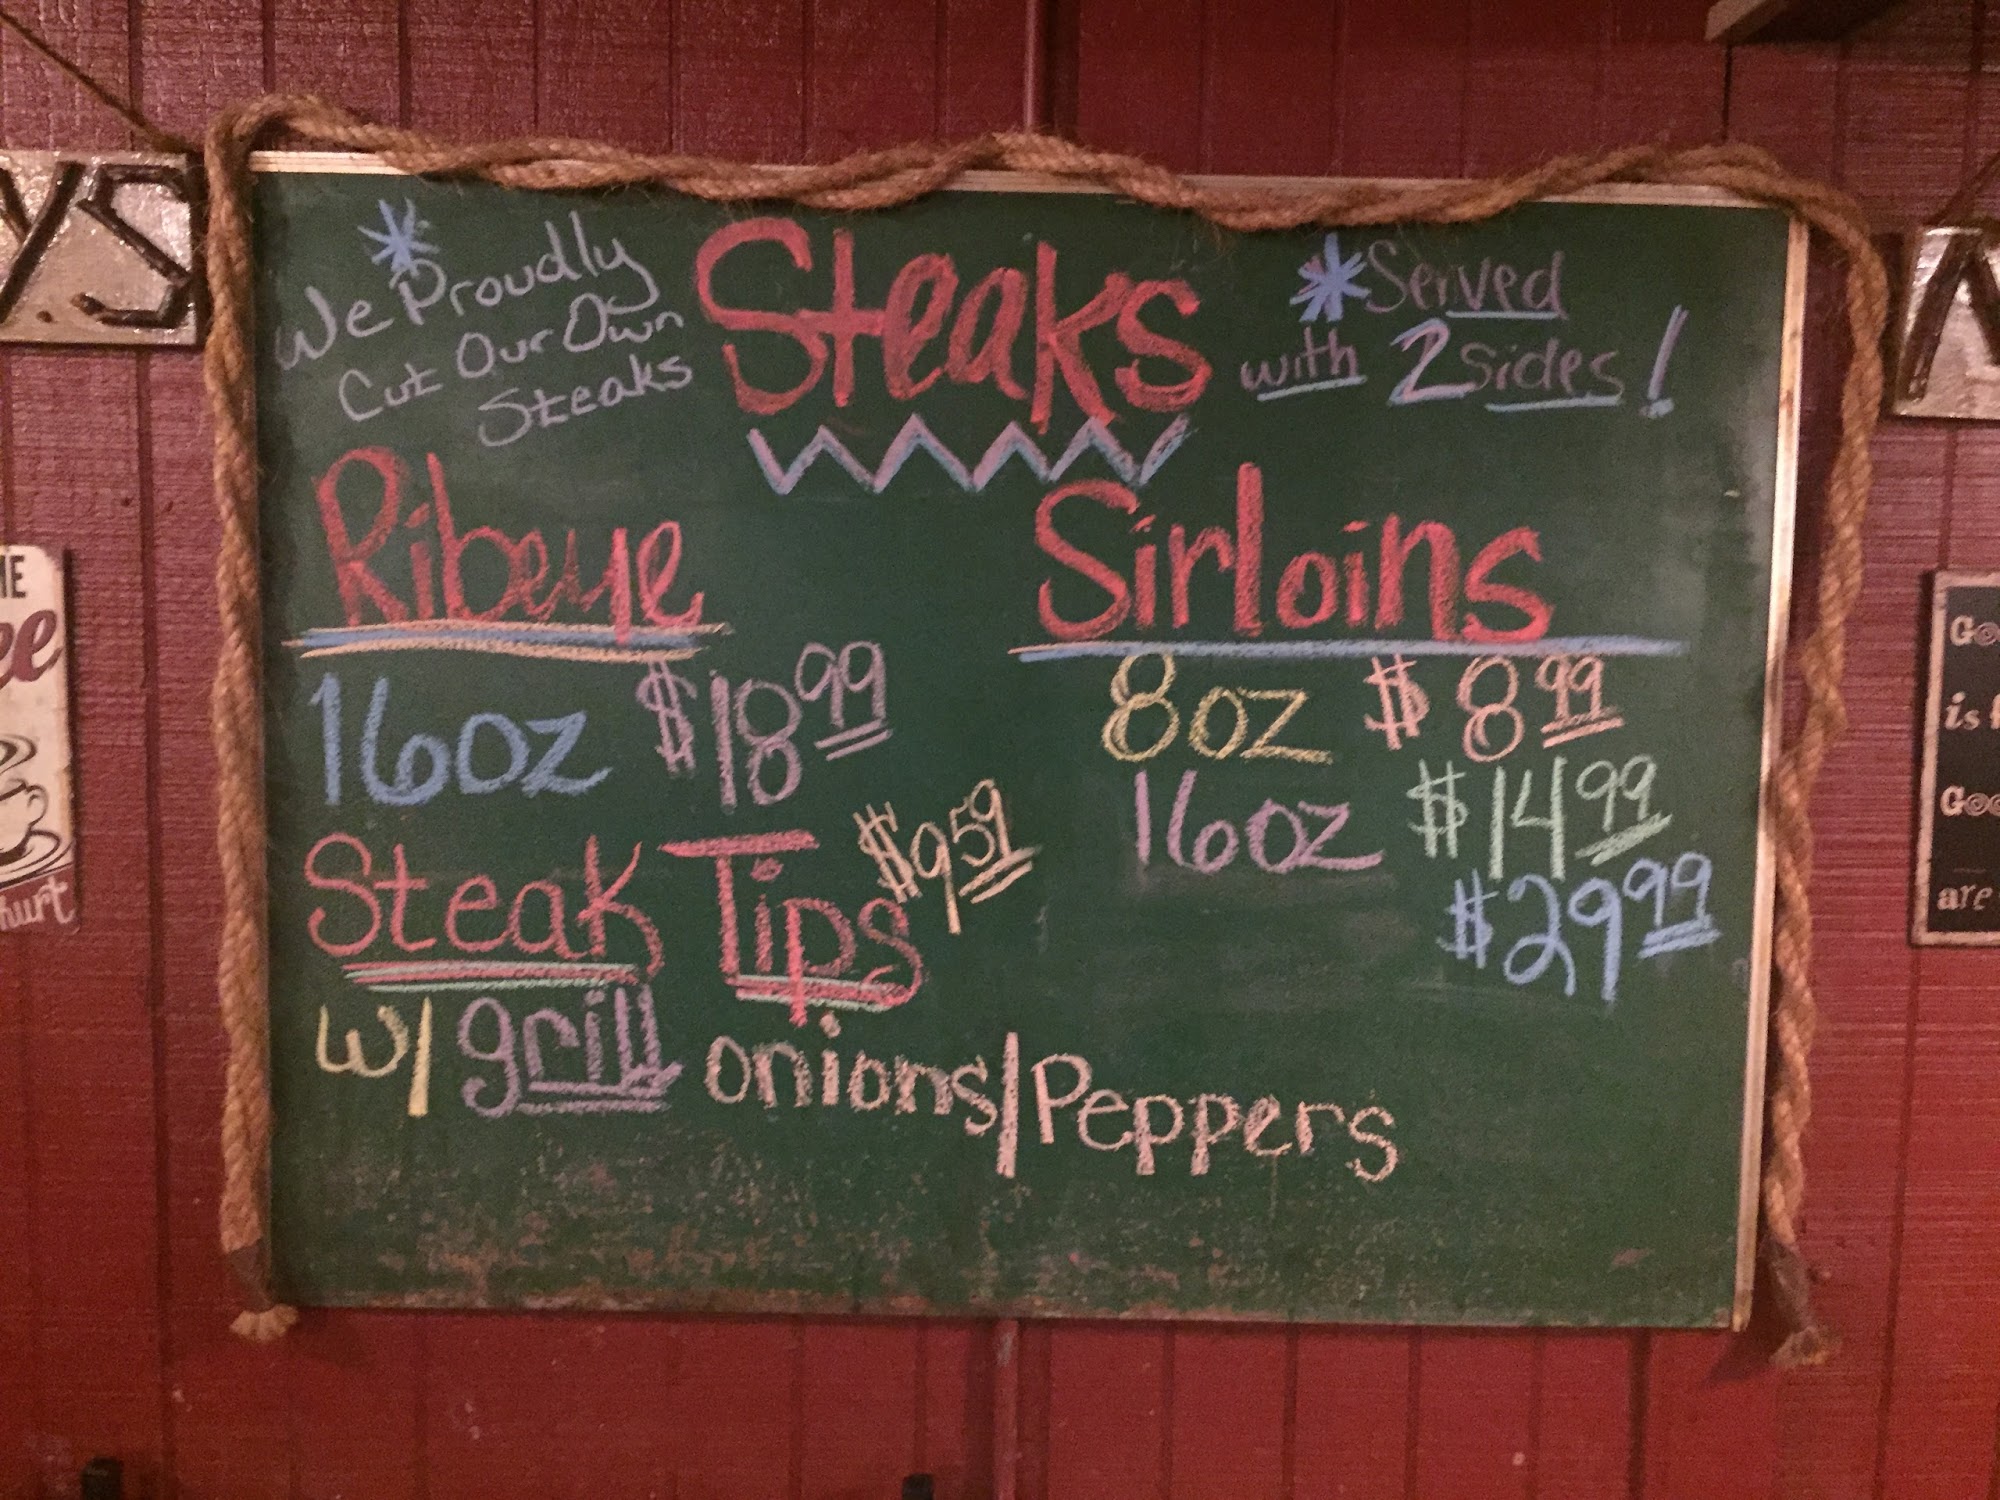 We Proudly
Cut Our Own
Steaks
Steaks
Served
with 2 sides!
Ribeye
16oz $18.99
Steak Tips $9.59
w/ grill onions/Peppers
Sirloins
8oz $8.99
16oz $14.99
$29.99
YS.
hurt
is
are